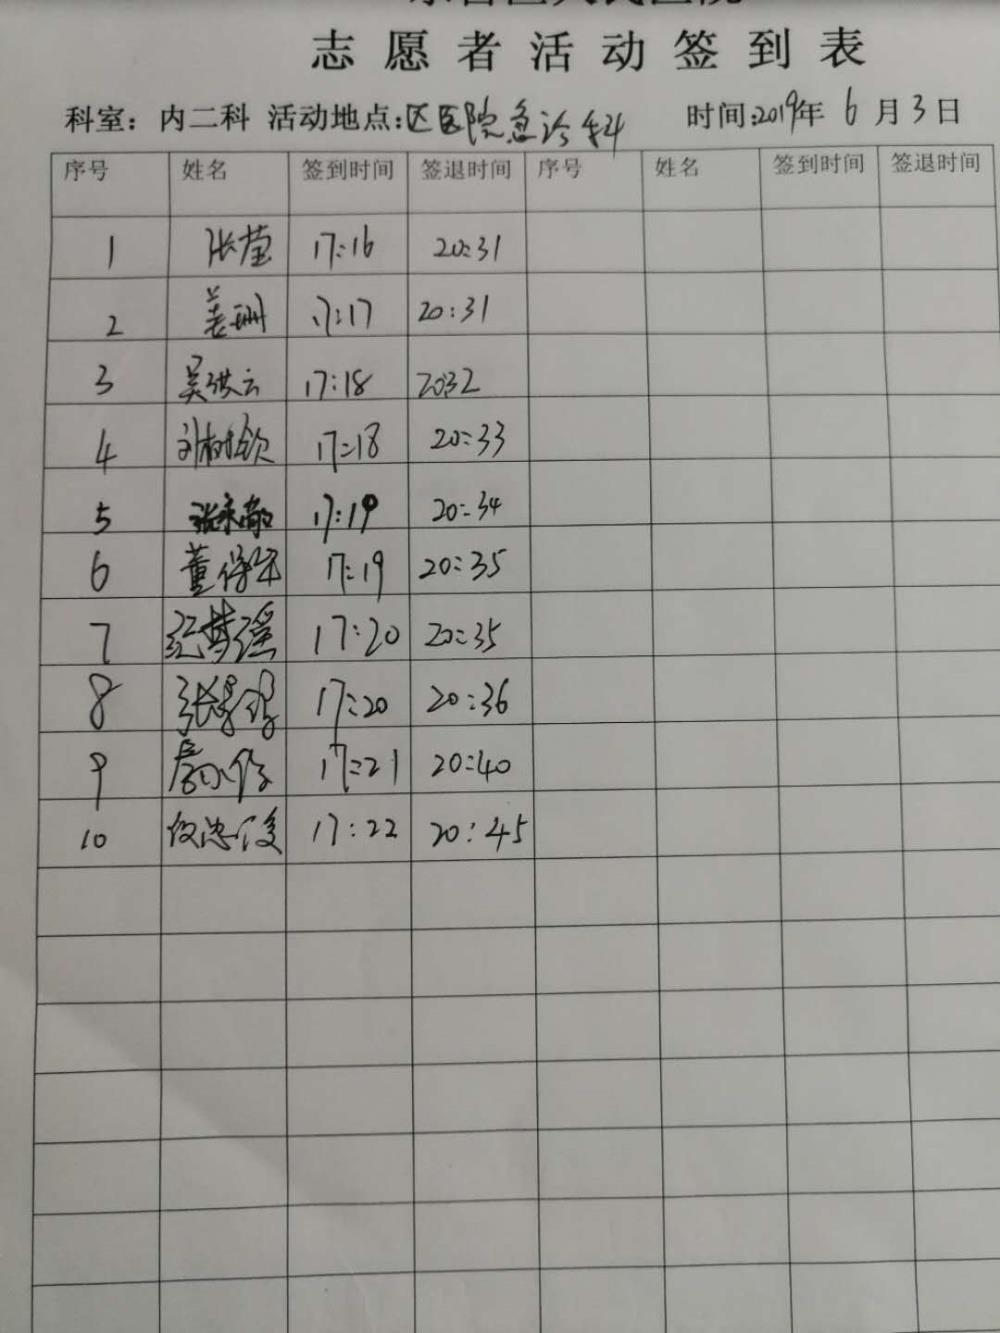 志愿者活动签到表
科室：内二科 活动地点:区医院急诊科 时间:2019年6月3日
序号 姓名 签到时间 签退时间 序号 姓名 签到时间 签退时间
1 张莹 17:16 20:31
2 姜珊 17:17 20:31
3 吴洪云 17:18 20:32
4 刘树钦 17:18 20:33
5 17:19 20:34
6 17:19 20:35
7 纪梦瑶 17:20 20:35
8 17:20 20:36
9 17:21 20:40
10 17:22 20:45